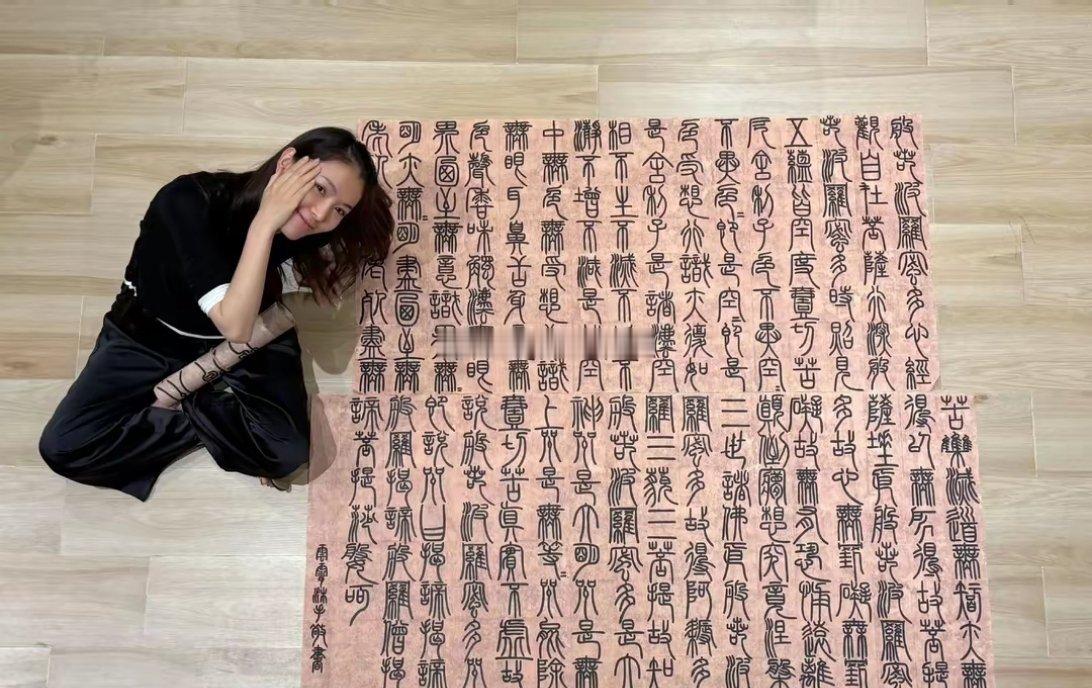 般若波羅蜜多心經
觀自在菩薩行深般
若波羅蜜多時照見
五蘊皆空度壹切苦
厄舍利子色不異空〻
不異色〻即是空〻即是
色受想行識亦復如
是舍利子是諸灋空
相不生不滅不不
瀞不增不減是空
中無色無受想識
無眼耳鼻舌身無
色聲香味觸灋眼
界乃至無意識無〻
明亦無〻明盡乃至無
老盡無
苦集滅道無智亦無
得以無所得故菩提
薩埵依般若波羅蜜
多故心無罣礙無罣
礙故無有恐怖遠離
顛倒夢想究竟涅槃
三世諸佛依般若波
羅蜜多故得阿耨多
羅三藐三菩提故知
般若波羅蜜多是大
神咒是大明咒是無
上咒是無等〻咒能除
壹切苦真實不虛故
說般若波羅蜜多咒
即說咒曰揭諦揭諦
般羅揭諦般羅僧揭
諦菩提莎婆訶
沐手敬書